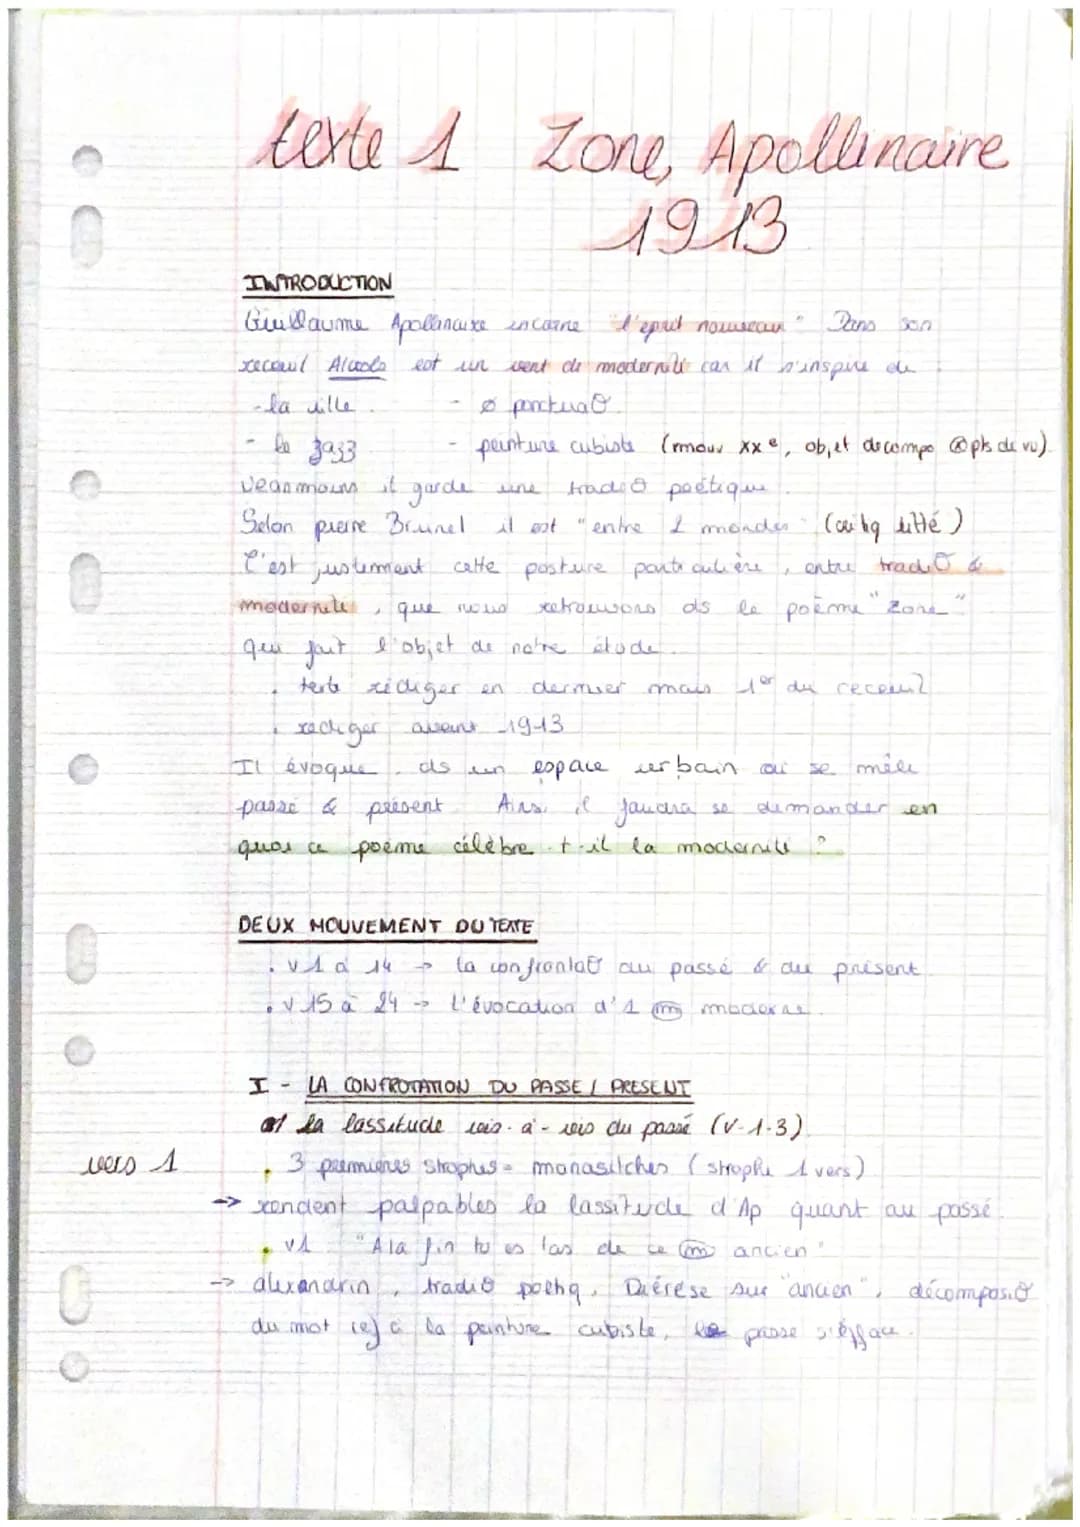 texte 1 Zone, Apollinaire
1913
INTRODUCTION
Guillaume Apollinaire incarne "l'eprit nouveau" Dans son
receuil Alcools est un vent de modernité car il s'inspire de :
- la ville - ø ponctuaO
- le jazz - peinture cubiste (mouv XXe, objet decompo @ pls de vu)
Néanmoins il garde une tradiO poétique.
Selon pierre Brunel il est "entre 2 mondes" (critiq litté)
C'est justement cette posture particulière, entre tradiO &
modernité, que nous retrouvons ds le poème "Zone"
qui fait l'objet de notre étude.
. texte rédiger en dernier mais 1er du receuil
. rediger avant 1913
Il évoque, ds un espace urbain où se mêle
passé & présent. Ainsi il faudra se demander en
quoi ce poème célèbre-t-il la modernité ?
DEUX MOUVEMENT DU TEXTE
. v 1 à 14 → la confrontaO du passé & du présent
. v 15 à 24 → l'évocation d'1 m moderne.
I - LA CONFROTATION DU PASSE / PRESENT
a/ la lassitude vis-à-vis du passé (v-1-3)
vers 1
. 3 premières strophes = monastiches (strophe 1 vers)
→ rendent palpables la lassitude d'Ap quant au passé.
. v1 "A la fin tu es las de ce m ancien"
→ alexandrin, tradiO poétiq. Diérèse sur "ancien", décomposiO
du mot rej à la peinture cubiste, le passé s'éfface.